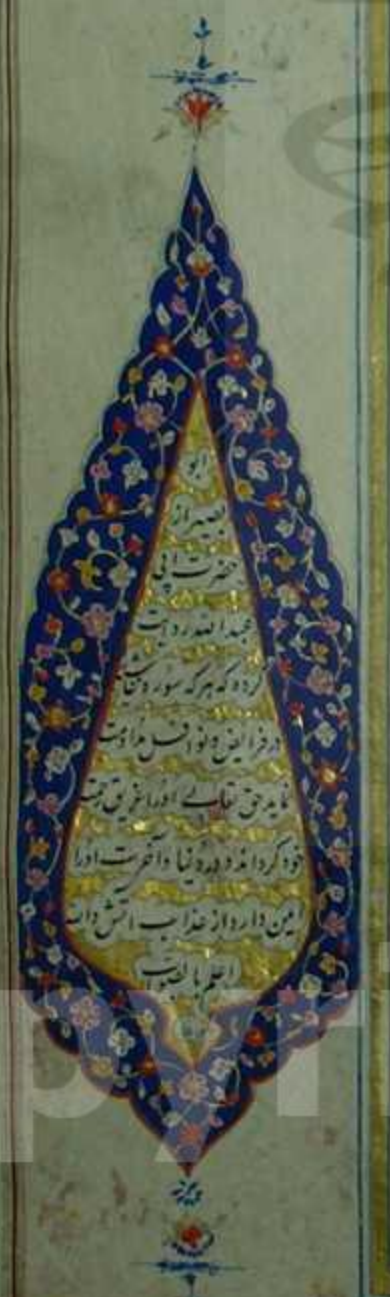 ابو
بصیر از
حضرت ابی
عبدالله روایت
کرده که هر که سوره دخان
در فرایض و نوافل مداومت
نماید حق تعالی او را غریق رحمت
خود گرداند و در دنیا و آخرت او را
امین دارد از عذاب آتش والله
اعلم بالصواب